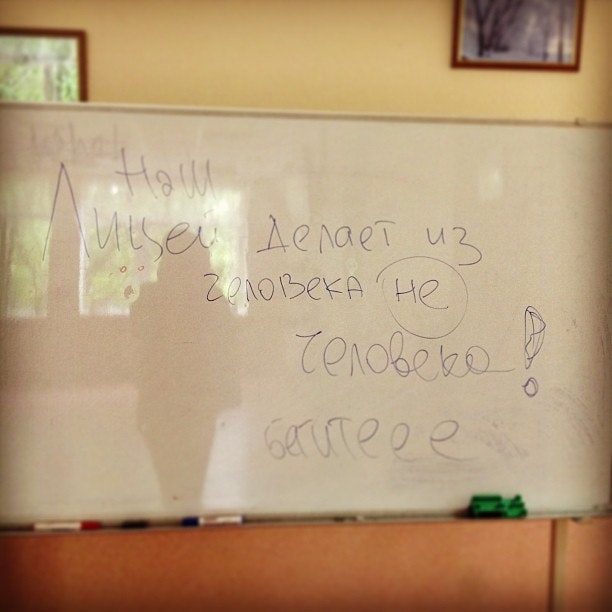 Наш
Лицей делает из
человека не
человека!
бегитеее